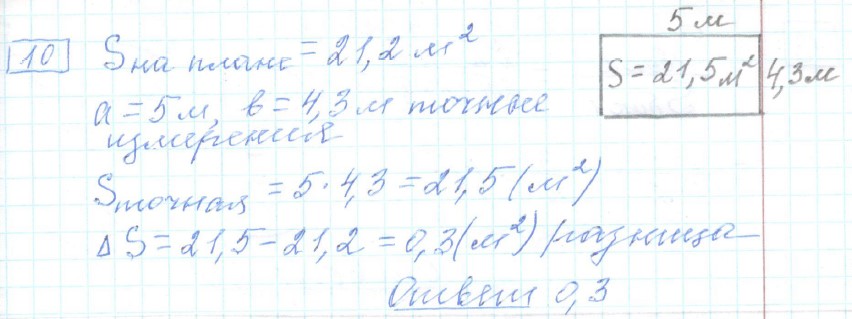 10 S на плане = 21,2 м²
a = 5 м, в = 4,3 м точные
измерения
S точная = 5 · 4,3 = 21,5 (м²)
Δ S = 21,5 - 21,2 = 0,3 (м²) разница
Ответ 0,3
5 м
S = 21,5 м² 4,3 м